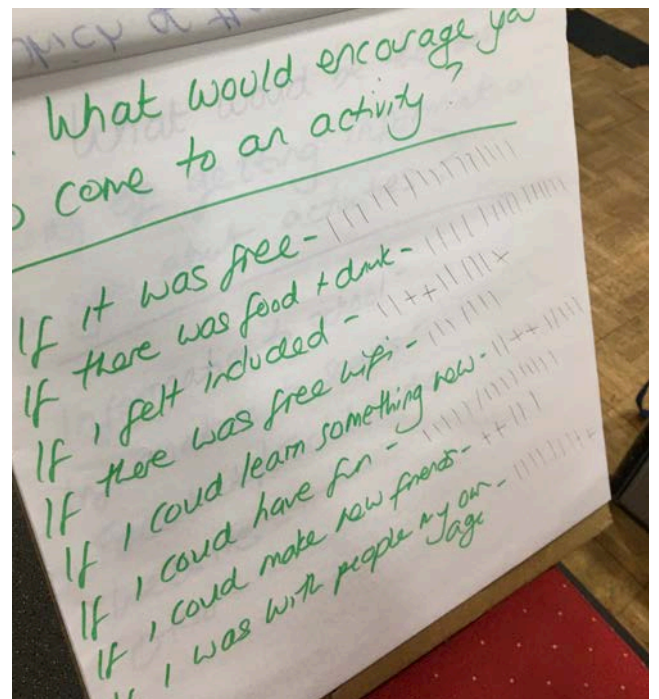 What would encourage you
come to an activity?
If it was free -
If there was food + drink -
If I felt included -
If there was free wifi -
If I coud learn something new -
If I coud have fun -
If I coud make new friends -
If I was with people my own -
age